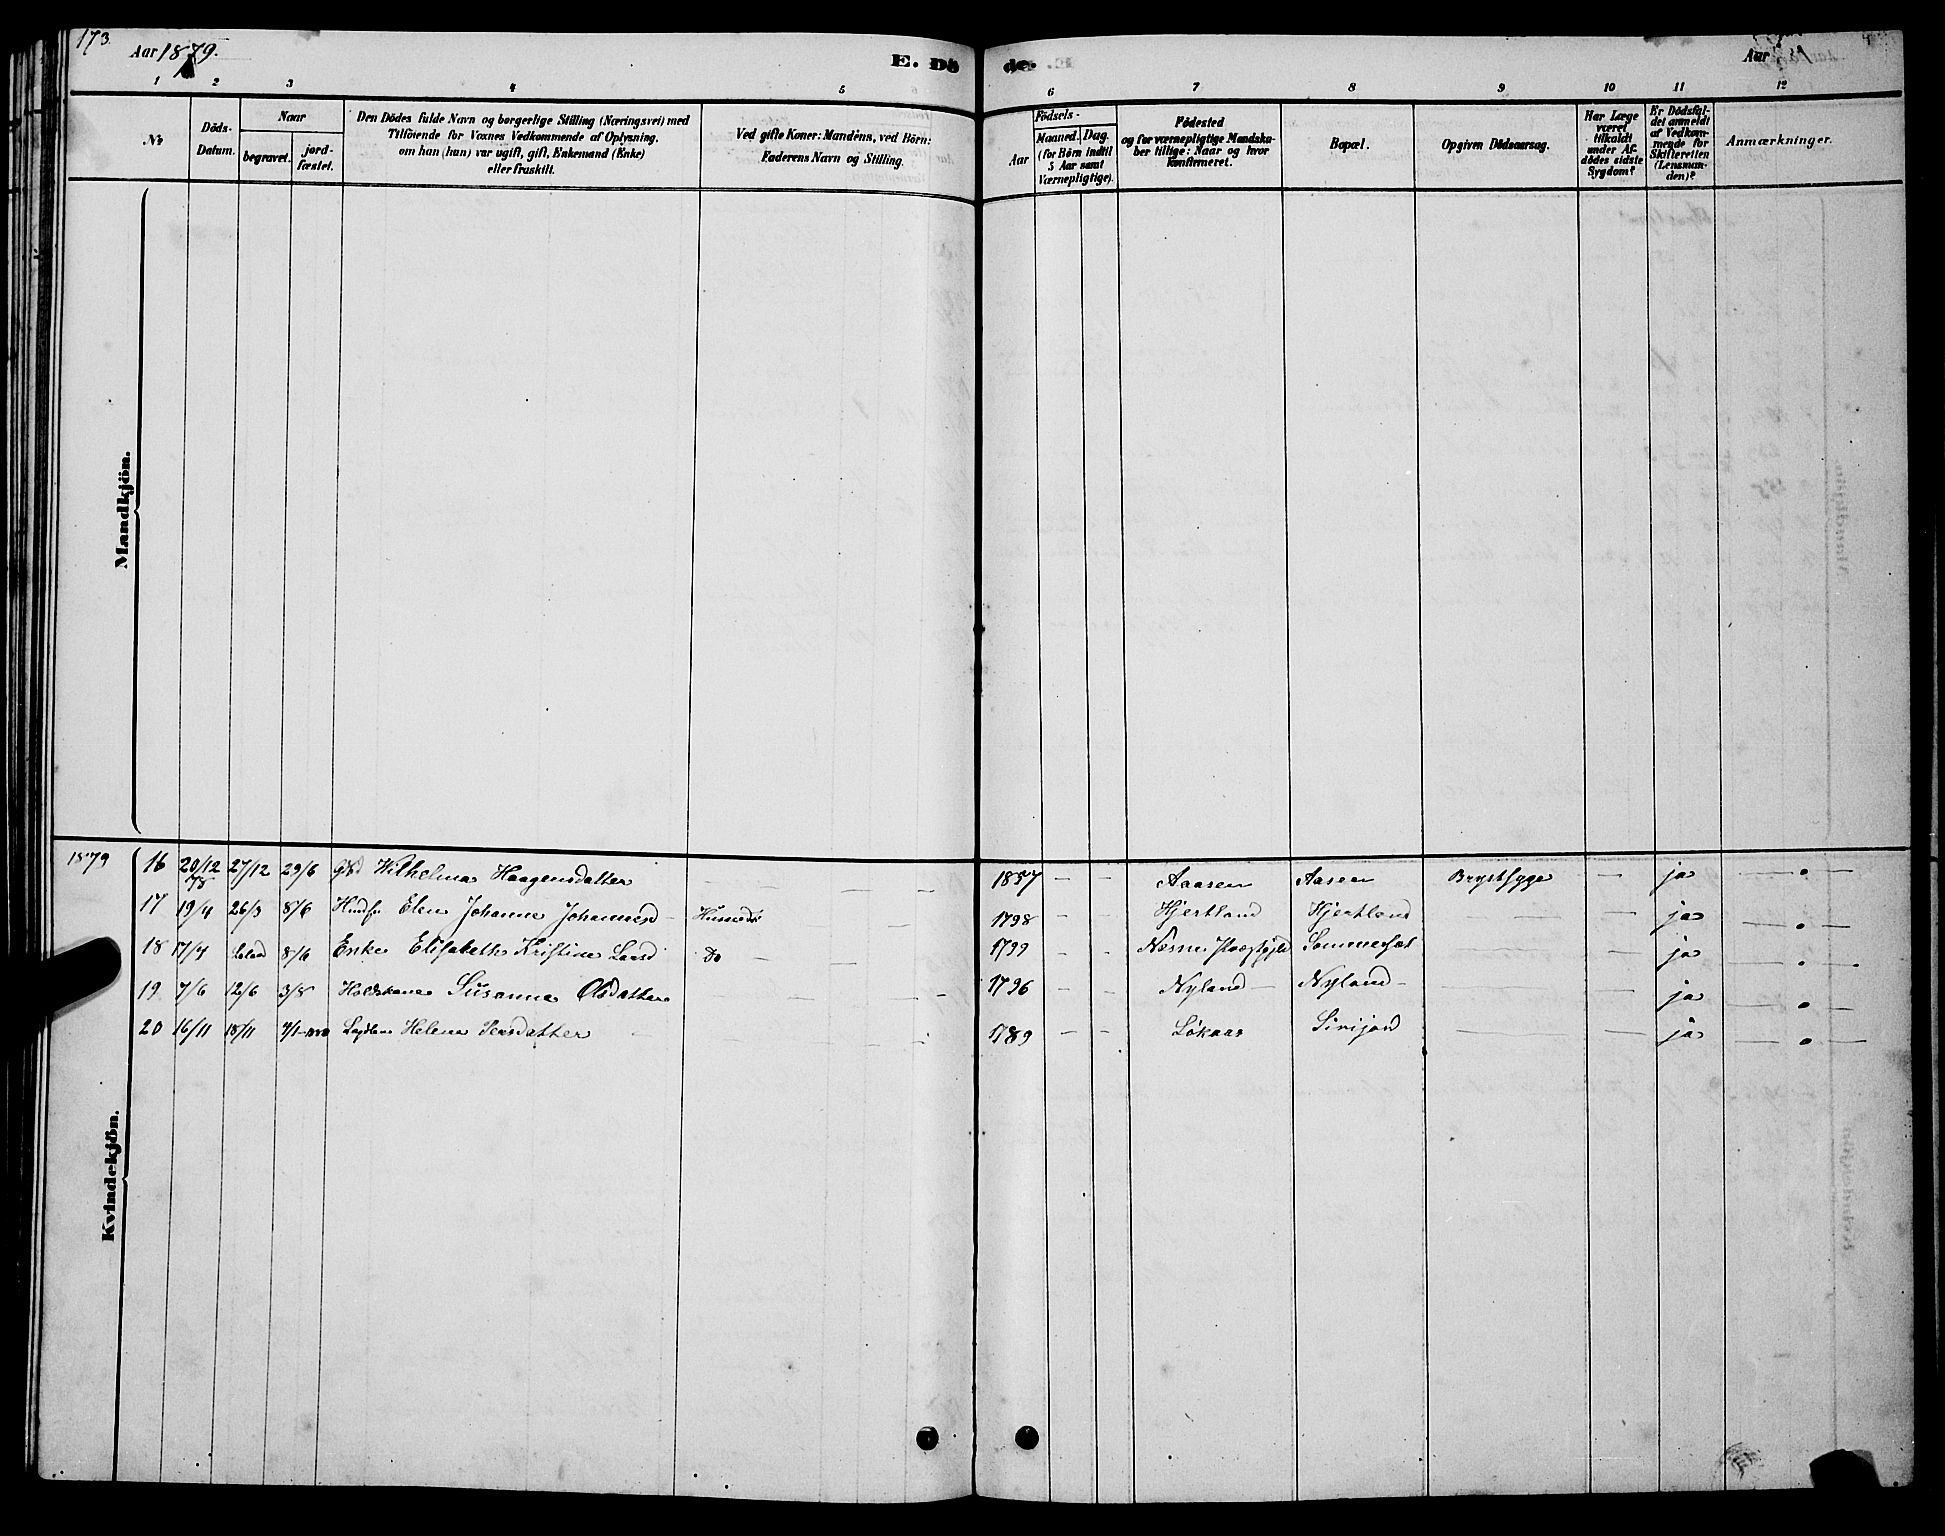 173.
Aar 1879.
E. Dö
de.
Aar
1 2 3 4 5 6 7 8 9 10 11 12
No
Döds-
Datum.
Naar
begravet.
jord-
fæstet.
Den Dödes fulde Navn og borgerlige Stilling (Næringsvei) med
Tilföiende for Voxnes Vedkommende af Oplysning.
om han (hun) var ugift, gift, Enkemand (Enke)
eller fraskilt.
Ved gifte Koner: Mandens, ved Börn:
Faderens Navn og Stilling.
Födsels-
Aar
Maaned.
Dag.
(for Börn indtil
5 Aar samt
Værnepligtige).
Födested
og for værnepligtige Mandska-
ber tillige: Naar og hvor
konfirmeret.
Bopæl.
Opgiven Dödsaarsag.
Har Læge
været
tilkaldt
under Af-
dödes sidste
Sygdom?
Er Dödsfal-
det anmeldt
af Vedkom-
mende for
Skifteretten
(Lensman-
den)?
Anmærkninger.
Mandkjön.
Kvindekjön.
1879 16 20/12 78 27/12 29/6 Wilhelma Haagensdatter — — — 1857 — — Aaasen Aasen Brystsyge — ja — o —
17 19/4 26/3 8/6 Elen Johanne Johannesd — — — 1798 — — Hjertland Hjertland — — ja — o —
18 17/4 8/6 Enke Elisabeth Kristine Larsd Do — — — 1799 - - Nesne Præstgjeld Sommerset — — ja — o —
19 7/6 12/6 3/8 Susanna Olsdatter — — - 1796 — - Nyland — Nyland — — — ja — o —
20 16/11 18/11 Helena Persdatter — — — 1789 — - Lökaas Sirijord — — ja — o —